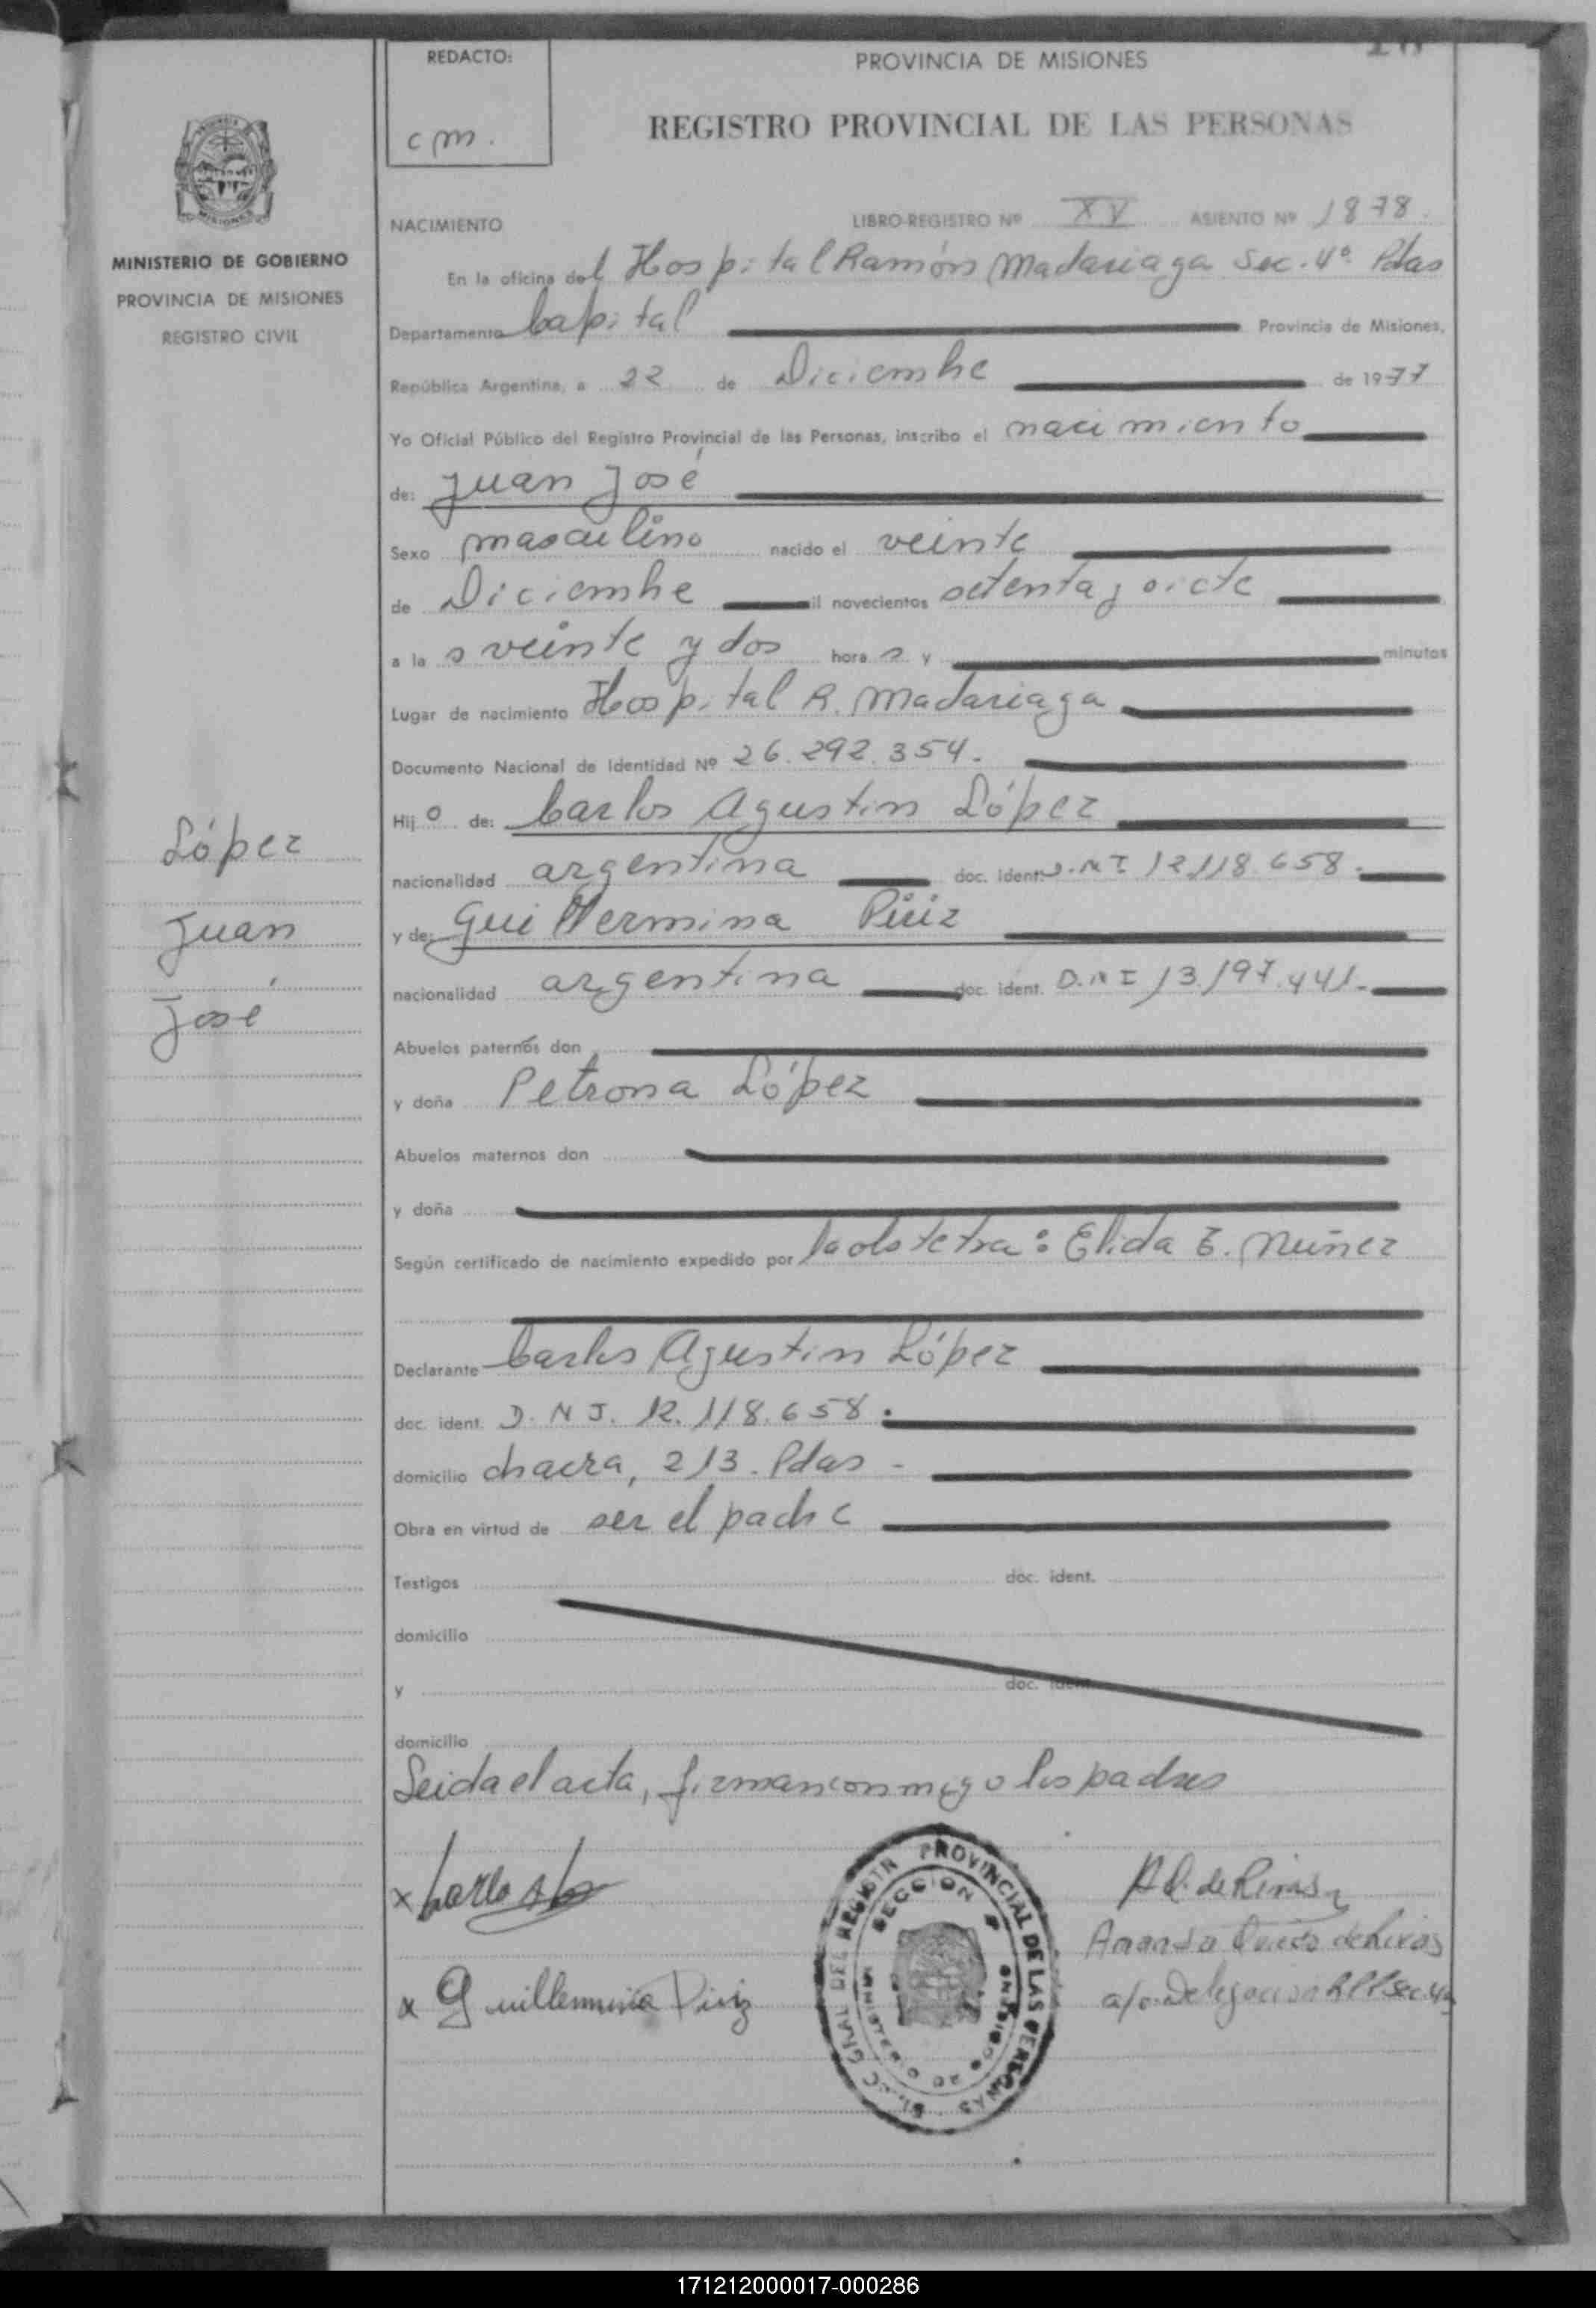 REDACTO:
cm.
PROVINCIA DE MISIONES
REGISTRO PROVINCIAL DE LAS PERSONAS
MINISTERIO DE GOBIERNO
PROVINCIA DE MISIONES
REGISTRO CIVIL
NACIMIENTO LIBRO-REGISTRO Nº XV ASIENTO Nº 1878.
En la oficina del Hospital Ramón Madariaga Sec. 4º Pdas
Departamento Capital Provincia de Misiones,
República Argentina, a 22 de Diciembre de 1977
Yo Oficial Público del Registro Provincial de las Personas, inscribo el nacimiento
de: Juan José
Sexo masculino nacido el veinte
de Diciembre mil novecientos setenta y siete
a la s veinte y dos hora s y minutos
Lugar de nacimiento Hospital R. Madariaga
Documento Nacional de Identidad Nº 26.292.354.
Hij o de: Carlos Agustin López
nacionalidad argentina doc. ident. D.N.I 12.118.658.
y de: Guillermina Piriz
nacionalidad argentina doc. ident. D.N I 13.197.441.
Abuelos paternos don
y doña Petrona López
Abuelos maternos don
y doña
Según certificado de nacimiento expedido por la obstetra: Elida E. Núñez
Declarante Carlos Agustin López
doc. ident. D.N.I. 12.118.658.
domicilio chacra, 213. Pdas -
Obra en virtud de ser el padre
Testigos doc. ident.
domicilio
y doc. ident.
domicilio
Leida el acta, firman conmigo los padres
López
Juan
José
x Carlos
x Guillermina Piriz
REGISTR PROVINCIAL DE LAS PERSONAS
SECCION
de Rivas
Amanda de Rivas
a/c. Delegacion R.P.P. Sec. 4a
171212000017-000286